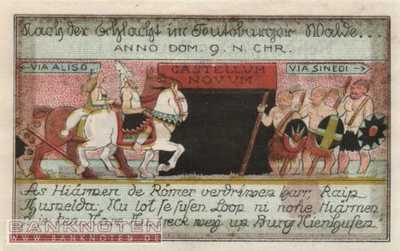 Nach der Schlacht im Teutoburger Walde...
ANNO DOM. 9. N. CHR.
← VIA ALISO
CASTELLUM NOVUM
VIA SINEDI →
As Hiärmen de Römer verdriwen harr, Raip
Thusnelda: Nu lot se susen Loop ni nohe Hiärmen
weg up Burg
BANKNOTEN